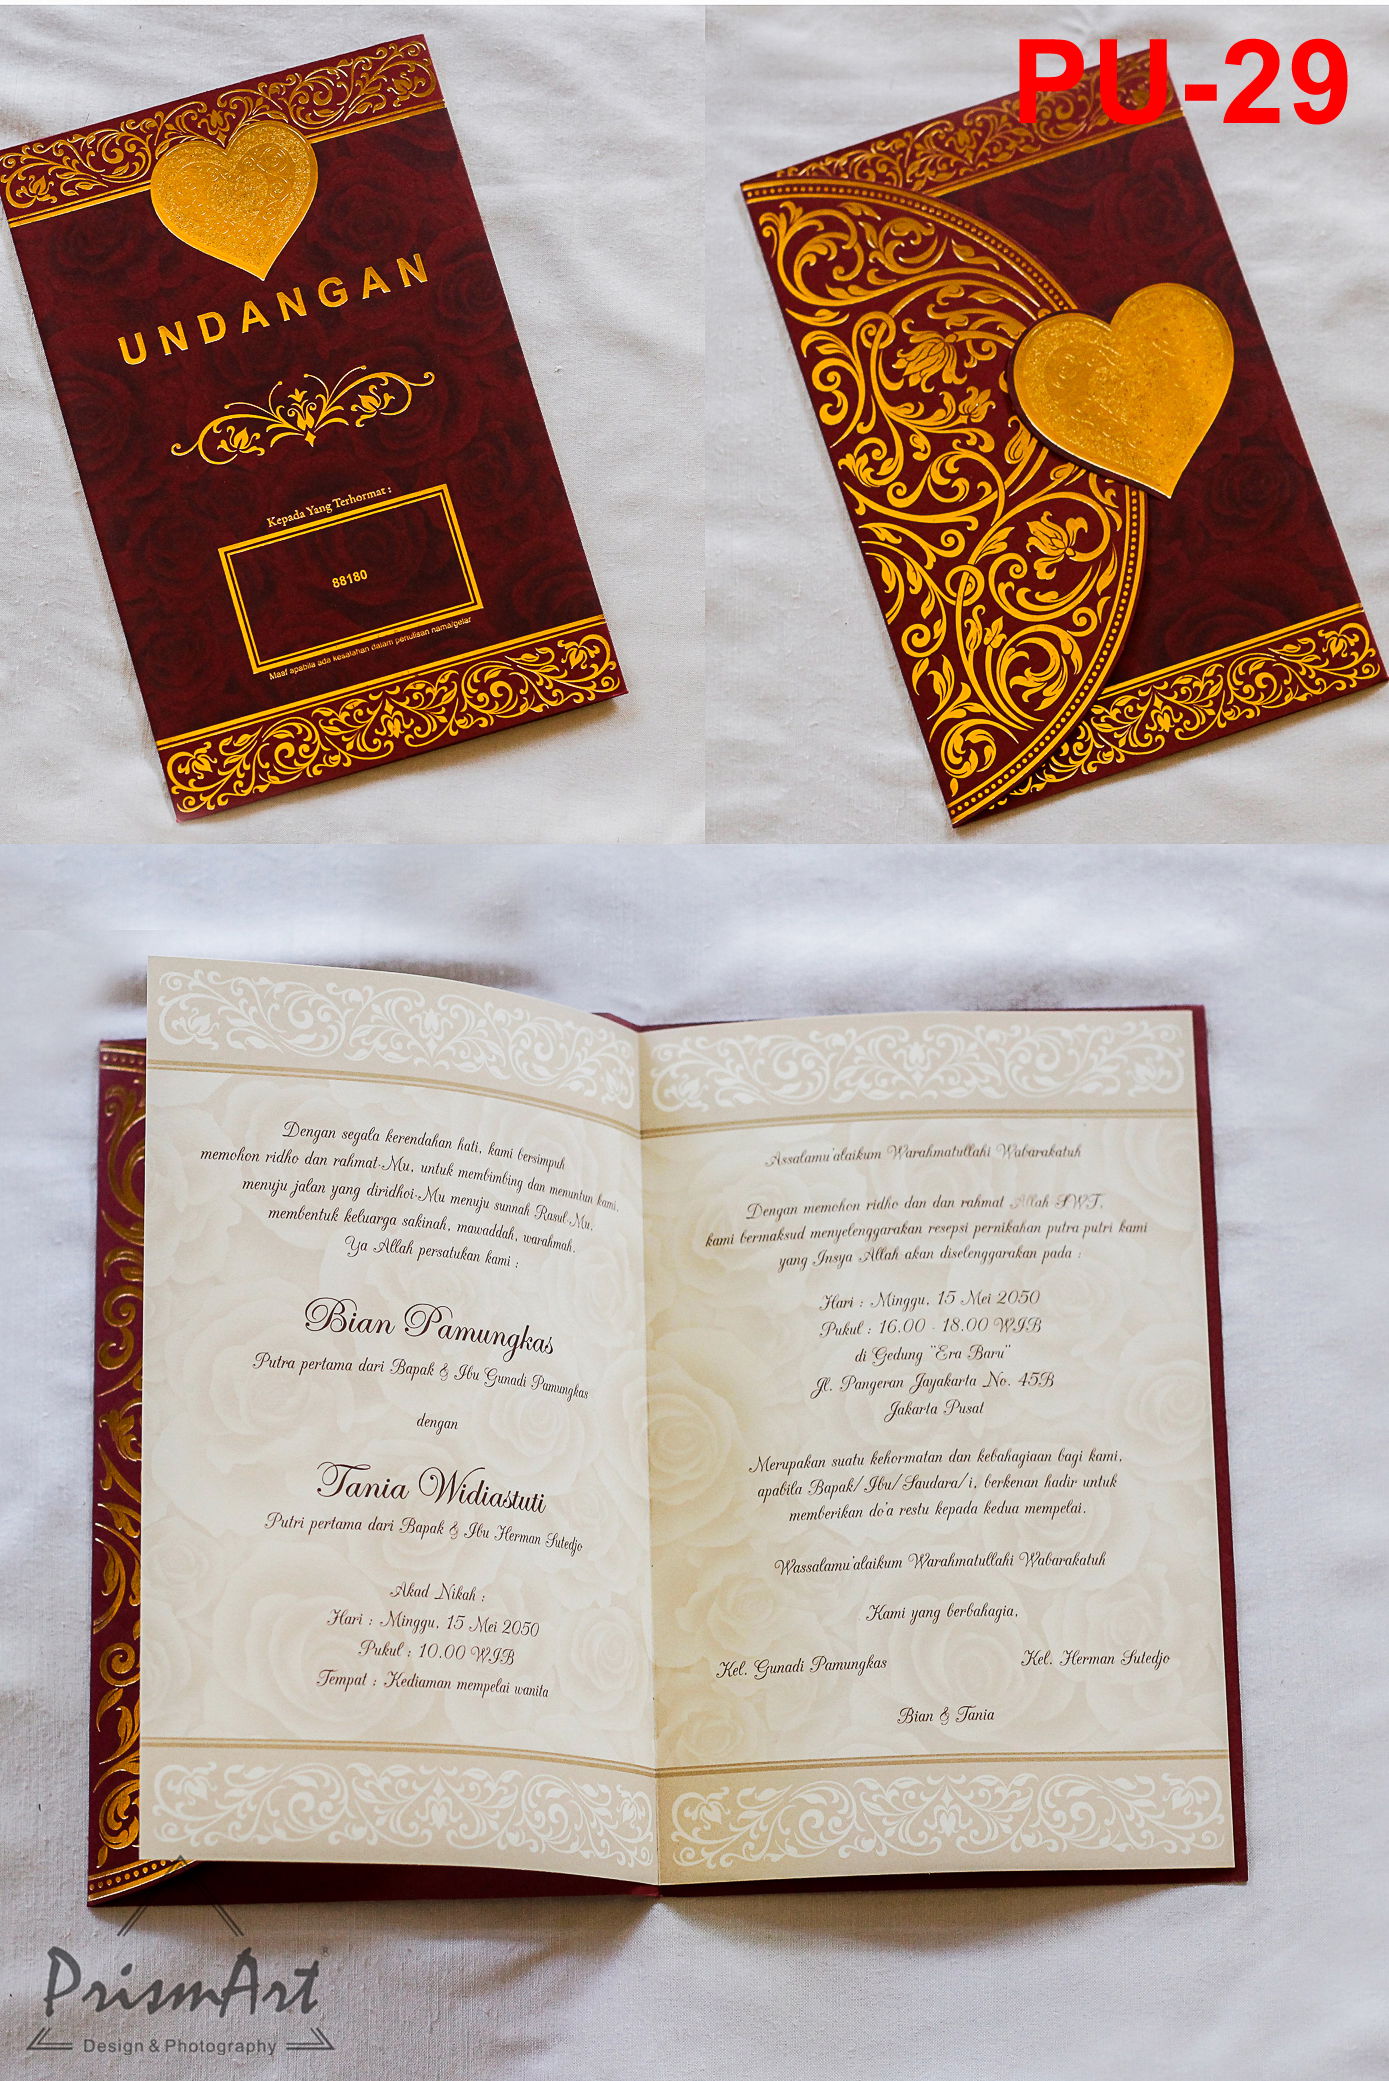 PU-29
UNDANGAN
Kepada Yang Terhormat :
88180
Maaf apabila ada kesalahan dalam penulisan nama/gelar
Dengan segala kerendahan hati, kami bersimpuh
memohon ridho dan rahmat-Mu, untuk membimbing dan menuntun kami,
menuju jalan yang diridhoi-Mu menuju sunnah Rasul-Mu,
membentuk keluarga sakinah, mawaddah, warahmah.
Ya Allah persatukan kami :
Bian Pamungkas
Putra pertama dari Bapak & Ibu Gunadi Pamungkas
dengan
Tania Widiastuti
Putri pertama dari Bapak & Ibu Herman Sutedjo
Akad Nikah :
Hari : Minggu, 15 Mei 2050
Pukul : 10.00 WIB
Tempat : Kediaman mempelai wanita
Assalamu'alaikum Warahmatullahi Wabarakatuh
Dengan memohon ridho dan dan rahmat Allah SWT,
kami bermaksud menyelenggarakan resepsi pernikahan putra putri kami
yang Insya Allah akan diselenggarakan pada :
Hari : Minggu, 15 Mei 2050
Pukul : 16.00 - 18.00 WIB
di Gedung "Era Baru"
Jl. Pangeran Jayakarta No. 45B
Jakarta Pusat
Merupakan suatu kehormatan dan kebahagiaan bagi kami,
apabila Bapak/Ibu/Saudara/i, berkenan hadir untuk
memberikan do'a restu kepada kedua mempelai.
Wassalamu'alaikum Warahmatullahi Wabarakatuh
Kami yang berbahagia,
Kel. Gunadi Pamungkas
Kel. Herman Sutedjo
Bian & Tania
PrismArt®
Design & Photography